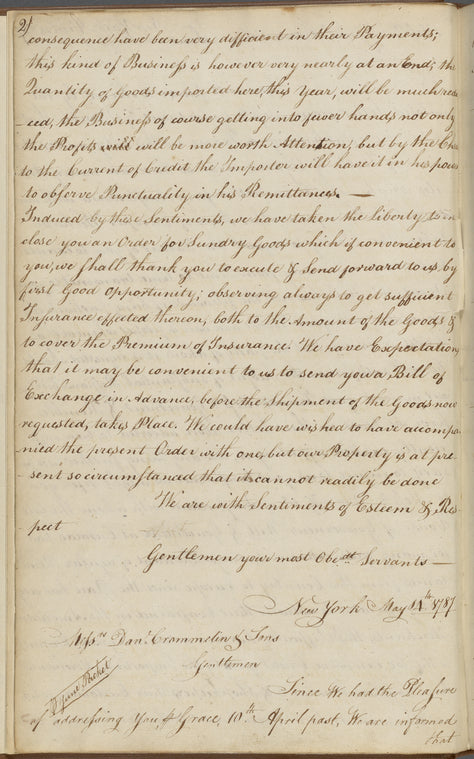 2/
consequence have been very difficient in their Payments;
this kind of Business is however very nearly at an End; the
Quantity of Goods imported here, this Year, will be much redu
-ced, the Business of course getting into fewer hands not only
the Profits will be more worth Attention, but by the Che
to the Current of Credit the Importer will have it in his pow
to observe Punctuality in his Remittances. —
Induced by these Sentiments, we have taken the liberty to in
close you an Order for Sundry Goods which if convenient to
you, we shall thank you to execute & Send forward to us, by
first Good Opportunity; observing always to get sufficient
Insurance effected thereon, both to the Amount of the Goods &
to cover the Premium of Insurance. We have Expectation
that it may be convenient to us to send you a Bill of
Exchange in Advance, before the Shipment of the Goods now
requested, takes Place. We could have wished to have accompa
-nied the present Order with one, but our Property is at pre-
-sent so circumstanced that it cannot readily be done
We are with Sentiments of Esteem & Res
-pect
Gentlemen your most Obedt. Servants —
New York May 1787
Messrs Danl. Crommelin & Sons
Gentlemen
Packet
Since We had the Pleasure
of addressing You, Grace, 10th April past, We are informed
that